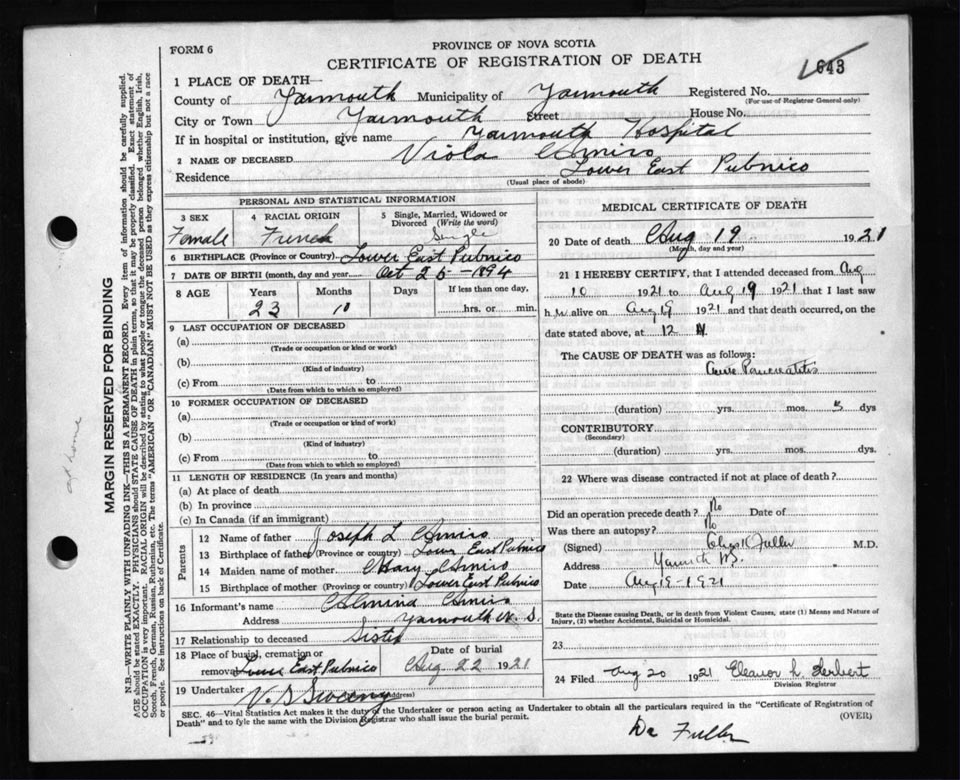 FORM 6
PROVINCE OF NOVA SCOTIA
CERTIFICATE OF REGISTRATION OF DEATH
643
1 PLACE OF DEATH—
County of Yarmouth Municipality of Yarmouth Registered No.
(For use of Registrar General only)
City or Town Yarmouth Street House No.
If in hospital or institution, give name Yarmouth Hospital
2 NAME OF DECEASED Viola Amiro
Residence Lower East Pubnico
(Usual place of abode)
PERSONAL AND STATISTICAL INFORMATION
3 SEX 4 RACIAL ORIGIN 5 Single, Married, Widowed or Divorced (Write the word)
Female French Single
6 BIRTHPLACE (Province or Country) Lower East Pubnico
7 DATE OF BIRTH (month, day and year) Oct 25 - 1894
8 AGE Years Months Days If less than one day,
23 10 hrs. or min.
9 LAST OCCUPATION OF DECEASED
(a)
(Trade or occupation or kind or work)
(b)
(Kind of industry)
(c) From to
(Date from which to which so employed)
10 FORMER OCCUPATION OF DECEASED
(a)
(Trade or occupation or kind of work)
(b)
(Kind of industry)
(c) From to
(Date from which to which so employed)
11 LENGTH OF RESIDENCE (In years and months)
(a) At place of death
(b) In province
(c) In Canada (if an immigrant)
Parents
12 Name of father Joseph L Amiro
13 Birthplace of father (Province or country) Lower East Pubnico
14 Maiden name of mother Mary Amiro
15 Birthplace of mother (Province or country) Lower East Pubnico
16 Informant's name Almina Amiro
Address Yarmouth N. S.
17 Relationship to deceased Sister
18 Place of burial, cremation or removal Lower East Pubnico
Date of burial Aug 22 1921
19 Undertaker V. S Sweeny (Address)
MEDICAL CERTIFICATE OF DEATH
20 Date of death Aug 19 1921
(Month, day and year)
21 I HEREBY CERTIFY, that I attended deceased from Aug
10 1921 to Aug 19 1921 that I last saw
h er alive on Aug 19 1921 and that death occurred, on the
date stated above, at 12 M
The CAUSE OF DEATH was as follows:
Acute Pancreatitis
(duration) yrs. mos. 5 dys
CONTRIBUTORY
(Secondary)
(duration) yrs. mos. dys.
22 Where was disease contracted if not at place of death?
Did an operation precede death? No Date of
Was there an autopsy? No
(Signed) Fuller M.D.
Address
Date Aug 19 - 1921
State the Disease causing Death, or in death from Violent Causes, state (1) Means and Nature of
Injury, (2) whether Accidental, Suicidal or Homicidal.
23
24 Filed Aug 20 1921 Eleanor L. Herbert
Division Registrar
SEC. 46—Vital Statistics Act makes it the duty of the Undertaker or person acting as Undertaker to obtain all the particulars required in the "Certificate of Registration of
Death" and to fyle the same with the Division Registrar who shall issue the burial permit.
(OVER)
Dr Fuller
at home
MARGIN RESERVED FOR BINDING
N.B.—WRITE PLAINLY WITH UNFADING INK—THIS IS A PERMANENT RECORD. Every item of information should be carefully supplied.
AGE should be stated EXACTLY. PHYSICIANS should STATE CAUSE OF DEATH in plain terms, so that it may be properly classified. Exact statement of
OCCUPATION is very important. RACIAL ORIGIN will be described by stating to what people or tongue the deceased person belonged whether English, Irish,
Scotch, French, German, Russian, Ruthenian, etc. The terms "AMERICAN" OR "CANADIAN" MUST NOT BE USED as they express citizenship but not a race
or people. See instructions on back of Certificate.